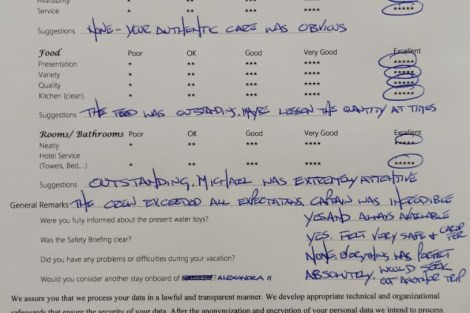 Availability
Service * ** *** **** *****
Suggestions NONE - YOUR AUTHENTIC CARE WAS OBVIOUS
Food Poor OK Good Very Good Excellent
Presentation * ** *** **** *****
Variety * ** *** **** *****
Quality * ** *** **** *****
Kitchen (clean) * ** *** **** *****
Suggestions THE FOOD WAS OUTSTANDING, MAYBE LESSON THE QUANTITY AT TIMES
Rooms/ Bathrooms Poor OK Good Very Good Excellent
Neatly * ** *** **** *****
Hotel Service
(Towels, Bed,..) * ** *** **** *****
Suggestions OUTSTANDING, MICHAEL WAS EXTREMELY ATTENTIVE
General Remarks THE CREW EXCEEDED ALL EXPECTATIONS, CAPTAIN WAS INCREDIBLE
Were you fully informed about the present water toys? YES AND ALWAYS AVAILABLE
Was the Safety Briefing clear? YES, FELT VERY SAFE & CARED FOR
Did you have any problems or difficulties during your vacation? NONE, EVERYTHING WAS PERFECT
Would you consider another stay onboard of ALEXANDRA II ABSOLUTELY. WOULD SEEK OUT ANOTHER TRIP
We assure you that we process your data in a lawful and transparent manner. We develop appropriate technical and organizational
safeguards that ensure the security of your data. After the anonymization and encryption of your personal data we intend to process